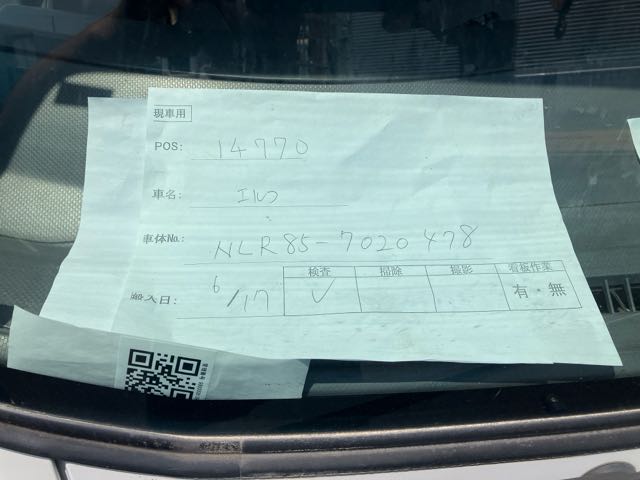 現車用
POS: 14770
車名: エルフ
車体No.: NLR85-7020478
搬入日: 6/17
検査 掃除 撮影 看板作業
✓ 有・無